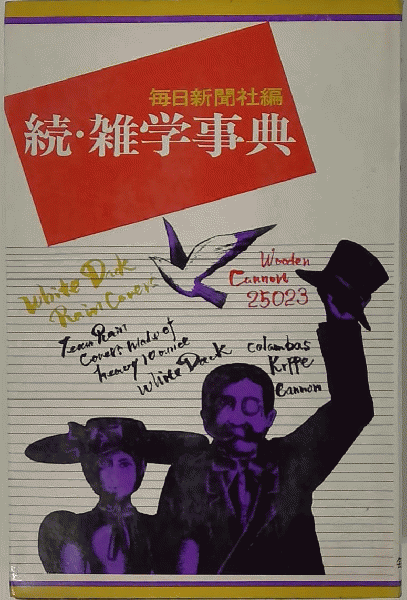 毎日新聞社編
続・雑学事典
White Duck
Rain Covers
Wooden
Cannon
25023
Team Rain
Covers Made of
heavy 10 ounce
White Duck
Columbas
Kriffe
Cannon